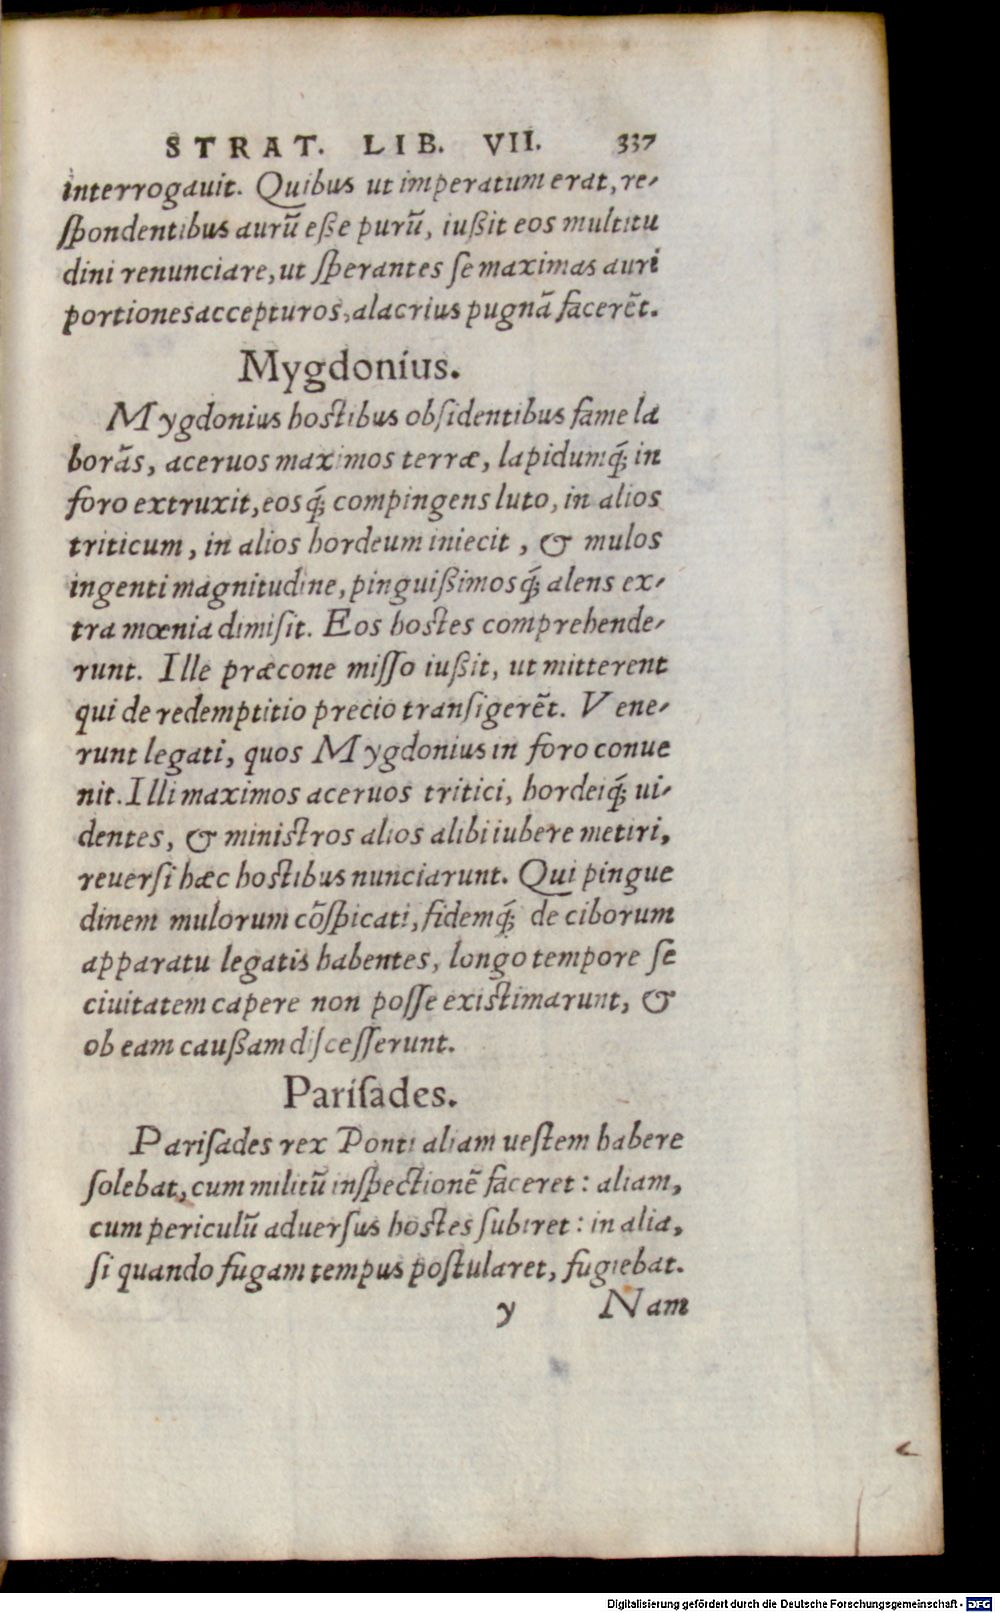 STRAT. LIB. VII. 337
interrogauit. Quibus ut imperatum erat, re-
ſpondentibus aurū eße purū, iußit eos multitu
dini renunciare, ut ſperantes ſe maximas auri
portiones accepturos, alacrius pugnā facerēt.
Mygdonius.
Mygdonius hostibus obſidentibus fame la
borās, aceruos maximos terræ, lapidumq́; in
foro extruxit, eosq́; compingens luto, in alios
triticum, in alios hordeum iniecit, & mulos
ingenti magnitudine, pinguißimosq́; alens ex-
tra mœnia dimiſit. Eos hostes comprehende-
runt. Ille præcone miſſo iußit, ut mitterent
qui de redemptitio precio transigerēt. Vene-
runt legati, quos Mygdonius in foro conue
nit. Illi maximos aceruos tritici, hordeiq́; ui-
dentes, & ministros alios alibi iubere metiri,
reuerſi hæc hostibus nunciarunt. Qui pingue
dinem mulorum cōſpicati, fidemq́; de ciborum
apparatu legatis habentes, longo tempore ſe
ciuitatem capere non poſſe existimarunt, &
ob eam caußam diſceſſerunt.
Pariſades.
Pariſades rex Ponti aliam ueſtem habere
ſolebat, cum militū inſpectionē faceret: aliam,
cum periculū aduerſus hostes ſubiret: in alia,
ſi quando fugam tempus poſtularet, fugiebat.
y Nam
Digitalisierung gefördert durch die Deutsche Forschungsgemeinschaft - DFG